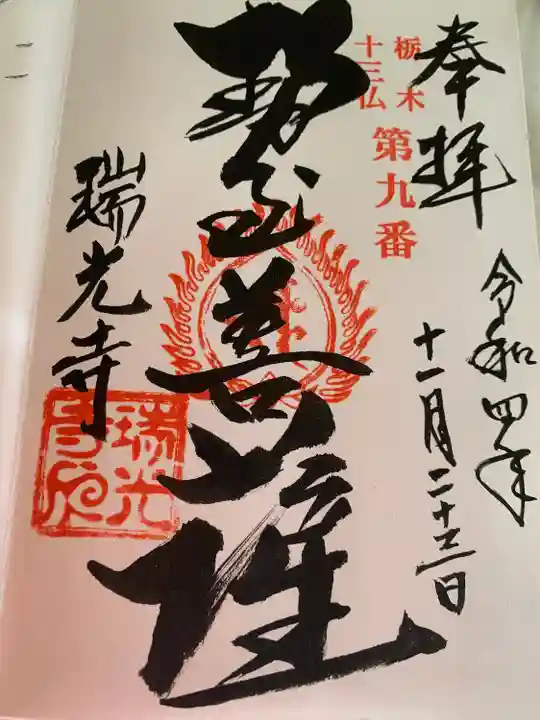 奉拝
令和四年
十一月二十三日
栃木
十三仏
第九番
勢至菩薩
瑞光寺
瑞光